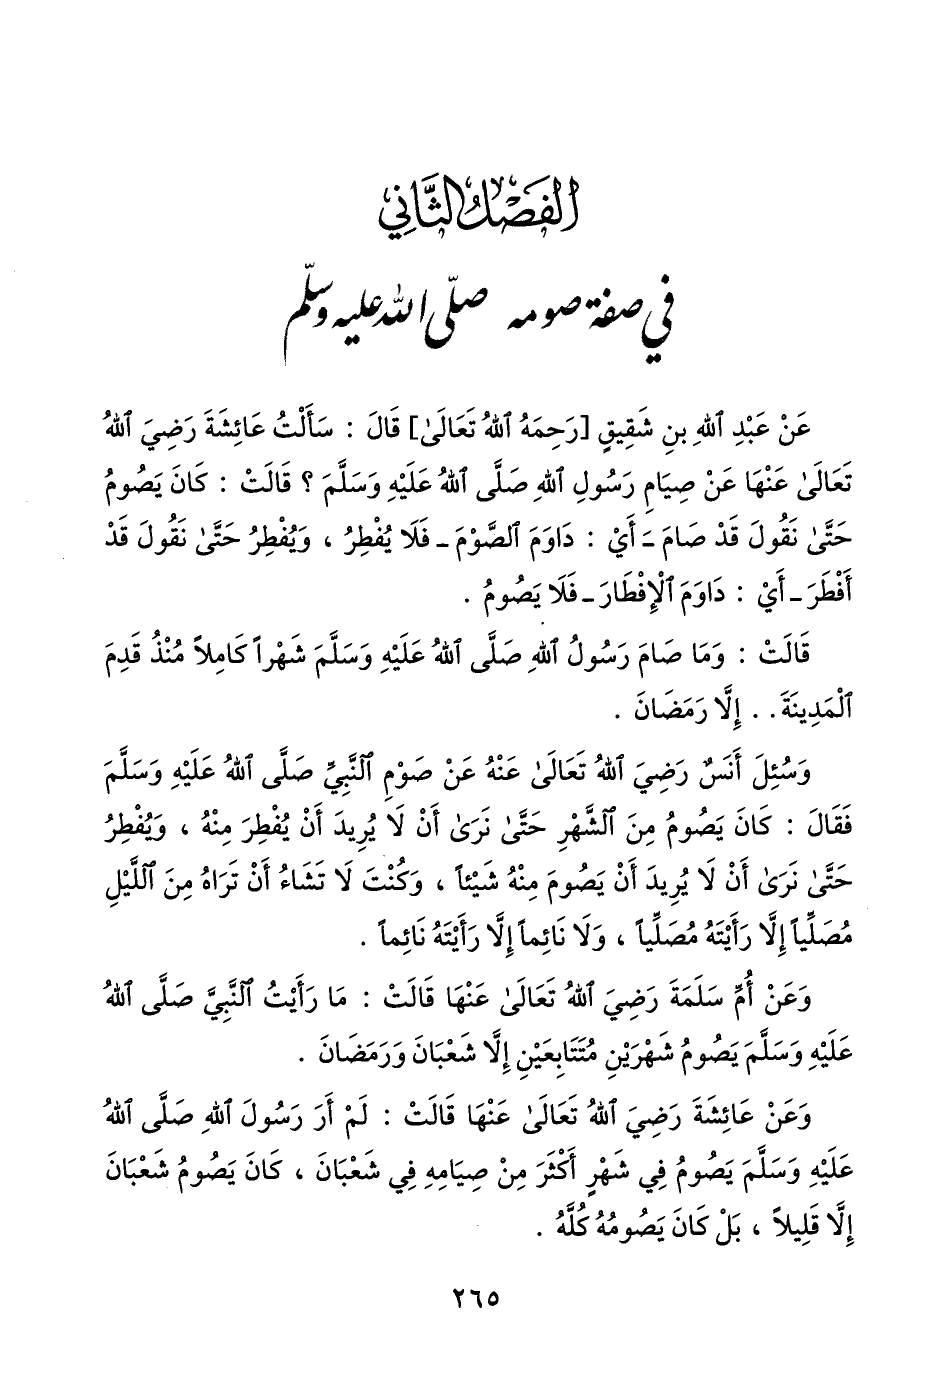 الفَصْلُ الثَّانِي
في صفة صومه صلّى الله عليه وسلّم
عَنْ عَبْدِ ٱللهِ بنِ شَقِيقٍ [رَحِمَهُ ٱللهُ تَعَالَىٰ] قَالَ : سَأَلْتُ عَائِشَةَ رَضِيَ ٱللهُ
تَعَالَىٰ عَنْهَا عَنْ صِيَامِ رَسُولِ ٱللهِ صَلَّى ٱللهُ عَلَيْهِ وَسَلَّمَ ؟ قَالَتْ : كَانَ يَصُومُ
حَتَّىٰ نَقُولَ قَدْ صَامَ ـ أَيْ : دَاوَمَ ٱلصَّوْمَ ـ فَلَا يُفْطِرُ ، وَيُفْطِرُ حَتَّىٰ نَقُولَ قَدْ
أَفْطَرَ ـ أَيْ : دَاوَمَ ٱلْإِفْطَارَ ـ فَلَا يَصُومُ .
قَالَتْ : وَمَا صَامَ رَسُولُ ٱللهِ صَلَّى ٱللهُ عَلَيْهِ وَسَلَّمَ شَهْراً كَامِلاً مُنْذُ قَدِمَ
ٱلْمَدِينَةَ . . إِلَّا رَمَضَانَ .
وَسُئِلَ أَنَسٌ رَضِيَ ٱللهُ تَعَالَىٰ عَنْهُ عَنْ صَوْمِ ٱلنَّبِيِّ صَلَّى ٱللهُ عَلَيْهِ وَسَلَّمَ
فَقَالَ : كَانَ يَصُومُ مِنَ ٱلشَّهْرِ حَتَّىٰ نَرَىٰ أَنْ لَا يُرِيدَ أَنْ يُفْطِرَ مِنْهُ ، وَيُفْطِرُ
حَتَّىٰ نَرَىٰ أَنْ لَا يُرِيدَ أَنْ يَصُومَ مِنْهُ شَيْئاً ، وَكُنْتَ لَا تَشَاءُ أَنْ تَرَاهُ مِنَ ٱللَّيْلِ
مُصَلِّياً إِلَّا رَأَيْتَهُ مُصَلِّياً ، وَلَا نَائِماً إِلَّا رَأَيْتَهُ نَائِماً .
وَعَنْ أُمِّ سَلَمَةَ رَضِيَ ٱللهُ تَعَالَىٰ عَنْهَا قَالَتْ : مَا رَأَيْتُ ٱلنَّبِيَّ صَلَّى ٱللهُ
عَلَيْهِ وَسَلَّمَ يَصُومُ شَهْرَيْنِ مُتَتَابِعَيْنِ إِلَّا شَعْبَانَ وَرَمَضَانَ .
وَعَنْ عَائِشَةَ رَضِيَ ٱللهُ تَعَالَىٰ عَنْهَا قَالَتْ : لَمْ أَرَ رَسُولَ ٱللهِ صَلَّى ٱللهُ
عَلَيْهِ وَسَلَّمَ يَصُومُ فِي شَهْرٍ أَكْثَرَ مِنْ صِيَامِهِ فِي شَعْبَانَ ، كَانَ يَصُومُ شَعْبَانَ
إِلَّا قَلِيلاً ، بَلْ كَانَ يَصُومُهُ كُلَّهُ .
٢٦٥